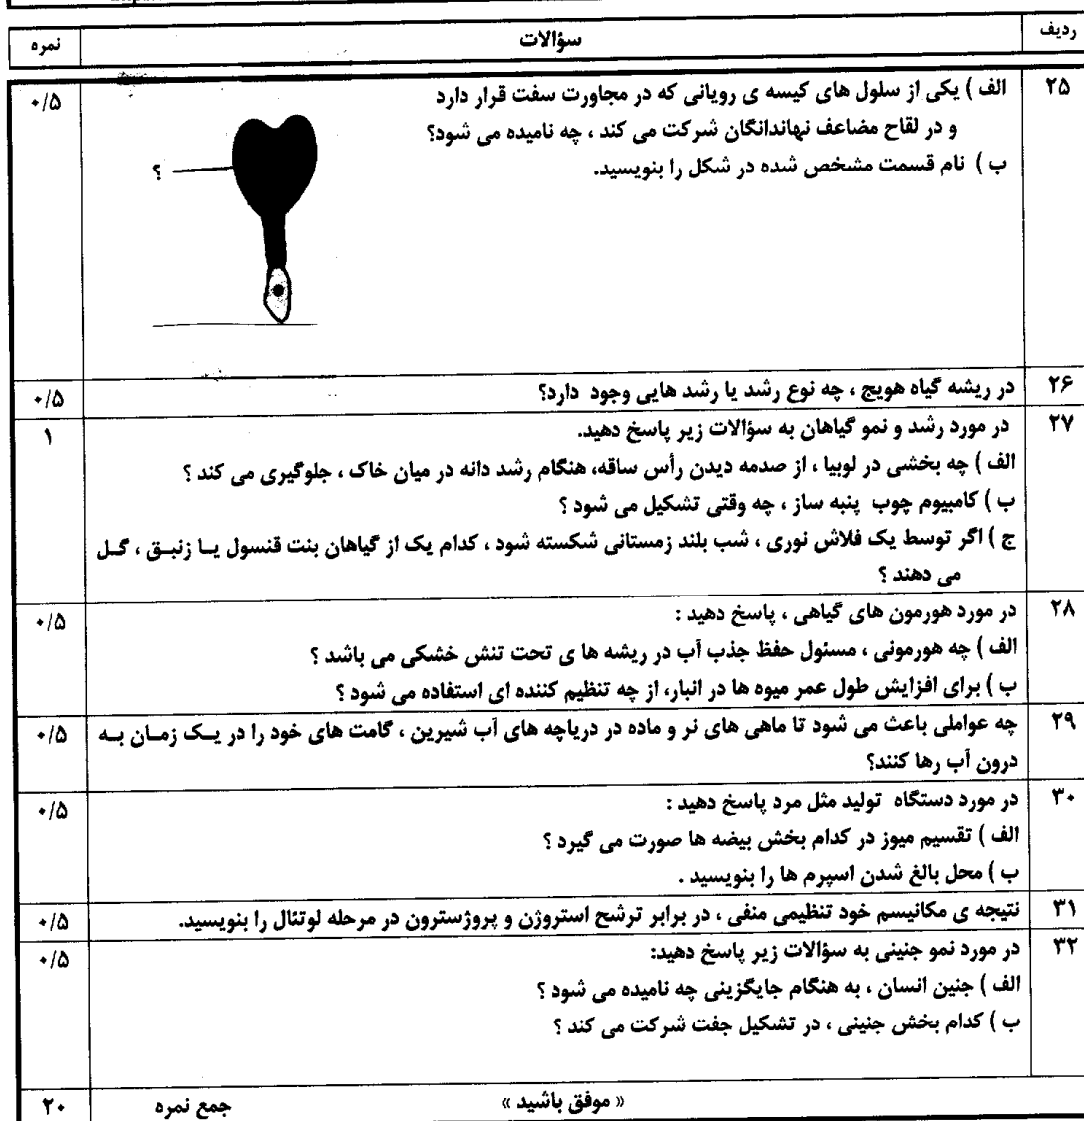 ردیف سؤالات نمره
۲۵ الف ) یکی از سلول های کیسه ی رویانی که در مجاورت سفت قرار دارد ۰/۵
و در لقاح مضاعف نهاندانگان شرکت می کند ، چه نامیده می شود؟
ب ) نام قسمت مشخص شده در شکل را بنویسید.
؟
۲۶ در ریشه گیاه هویج ، چه نوع رشد یا رشد هایی وجود دارد؟ ۰/۵
۲۷ در مورد رشد و نمو گیاهان به سؤالات زیر پاسخ دهید. ۱
الف ) چه بخشی در لوبیا ، از صدمه دیدن رأس ساقه، هنگام رشد دانه در میان خاک ، جلوگیری می کند ؟
ب ) کامبیوم چوب پنبه ساز ، چه وقتی تشکیل می شود ؟
ج ) اگر توسط یک فلاش نوری ، شب بلند زمستانی شکسته شود ، کدام یک از گیاهان بنت قنسول یـا زنبـق ، گـل
می دهند ؟
۲۸ در مورد هورمون های گیاهی ، پاسخ دهید : ۰/۵
الف ) چه هورمونی ، مسئول حفظ جذب آب در ریشه ها ی تحت تنش خشکی می باشد ؟
ب ) برای افزایش طول عمر میوه ها در انبار، از چه تنظیم کننده ای استفاده می شود ؟
۲۹ چه عواملی باعث می شود تا ماهی های نر و ماده در دریاچه های آب شیرین ، گامت های خود را در یـک زمـان بـه ۰/۵
درون آب رها کنند؟
۳۰ در مورد دستگاه تولید مثل مرد پاسخ دهید : ۰/۵
الف ) تقسیم میوز در کدام بخش بیضه ها صورت می گیرد ؟
ب ) محل بالغ شدن اسپرم ها را بنویسید .
۳۱ نتیجه ی مکانیسم خود تنظیمی منفی ، در برابر ترشح استروژن و پروژسترون در مرحله لوتئال را بنویسید. ۰/۵
۳۲ در مورد نمو جنینی به سؤالات زیر پاسخ دهید: ۰/۵
الف ) جنین انسان ، به هنگام جایگزینی چه نامیده می شود ؟
ب ) کدام بخش جنینی ، در تشکیل جفت شرکت می کند ؟
« موفق باشید » جمع نمره ۲۰